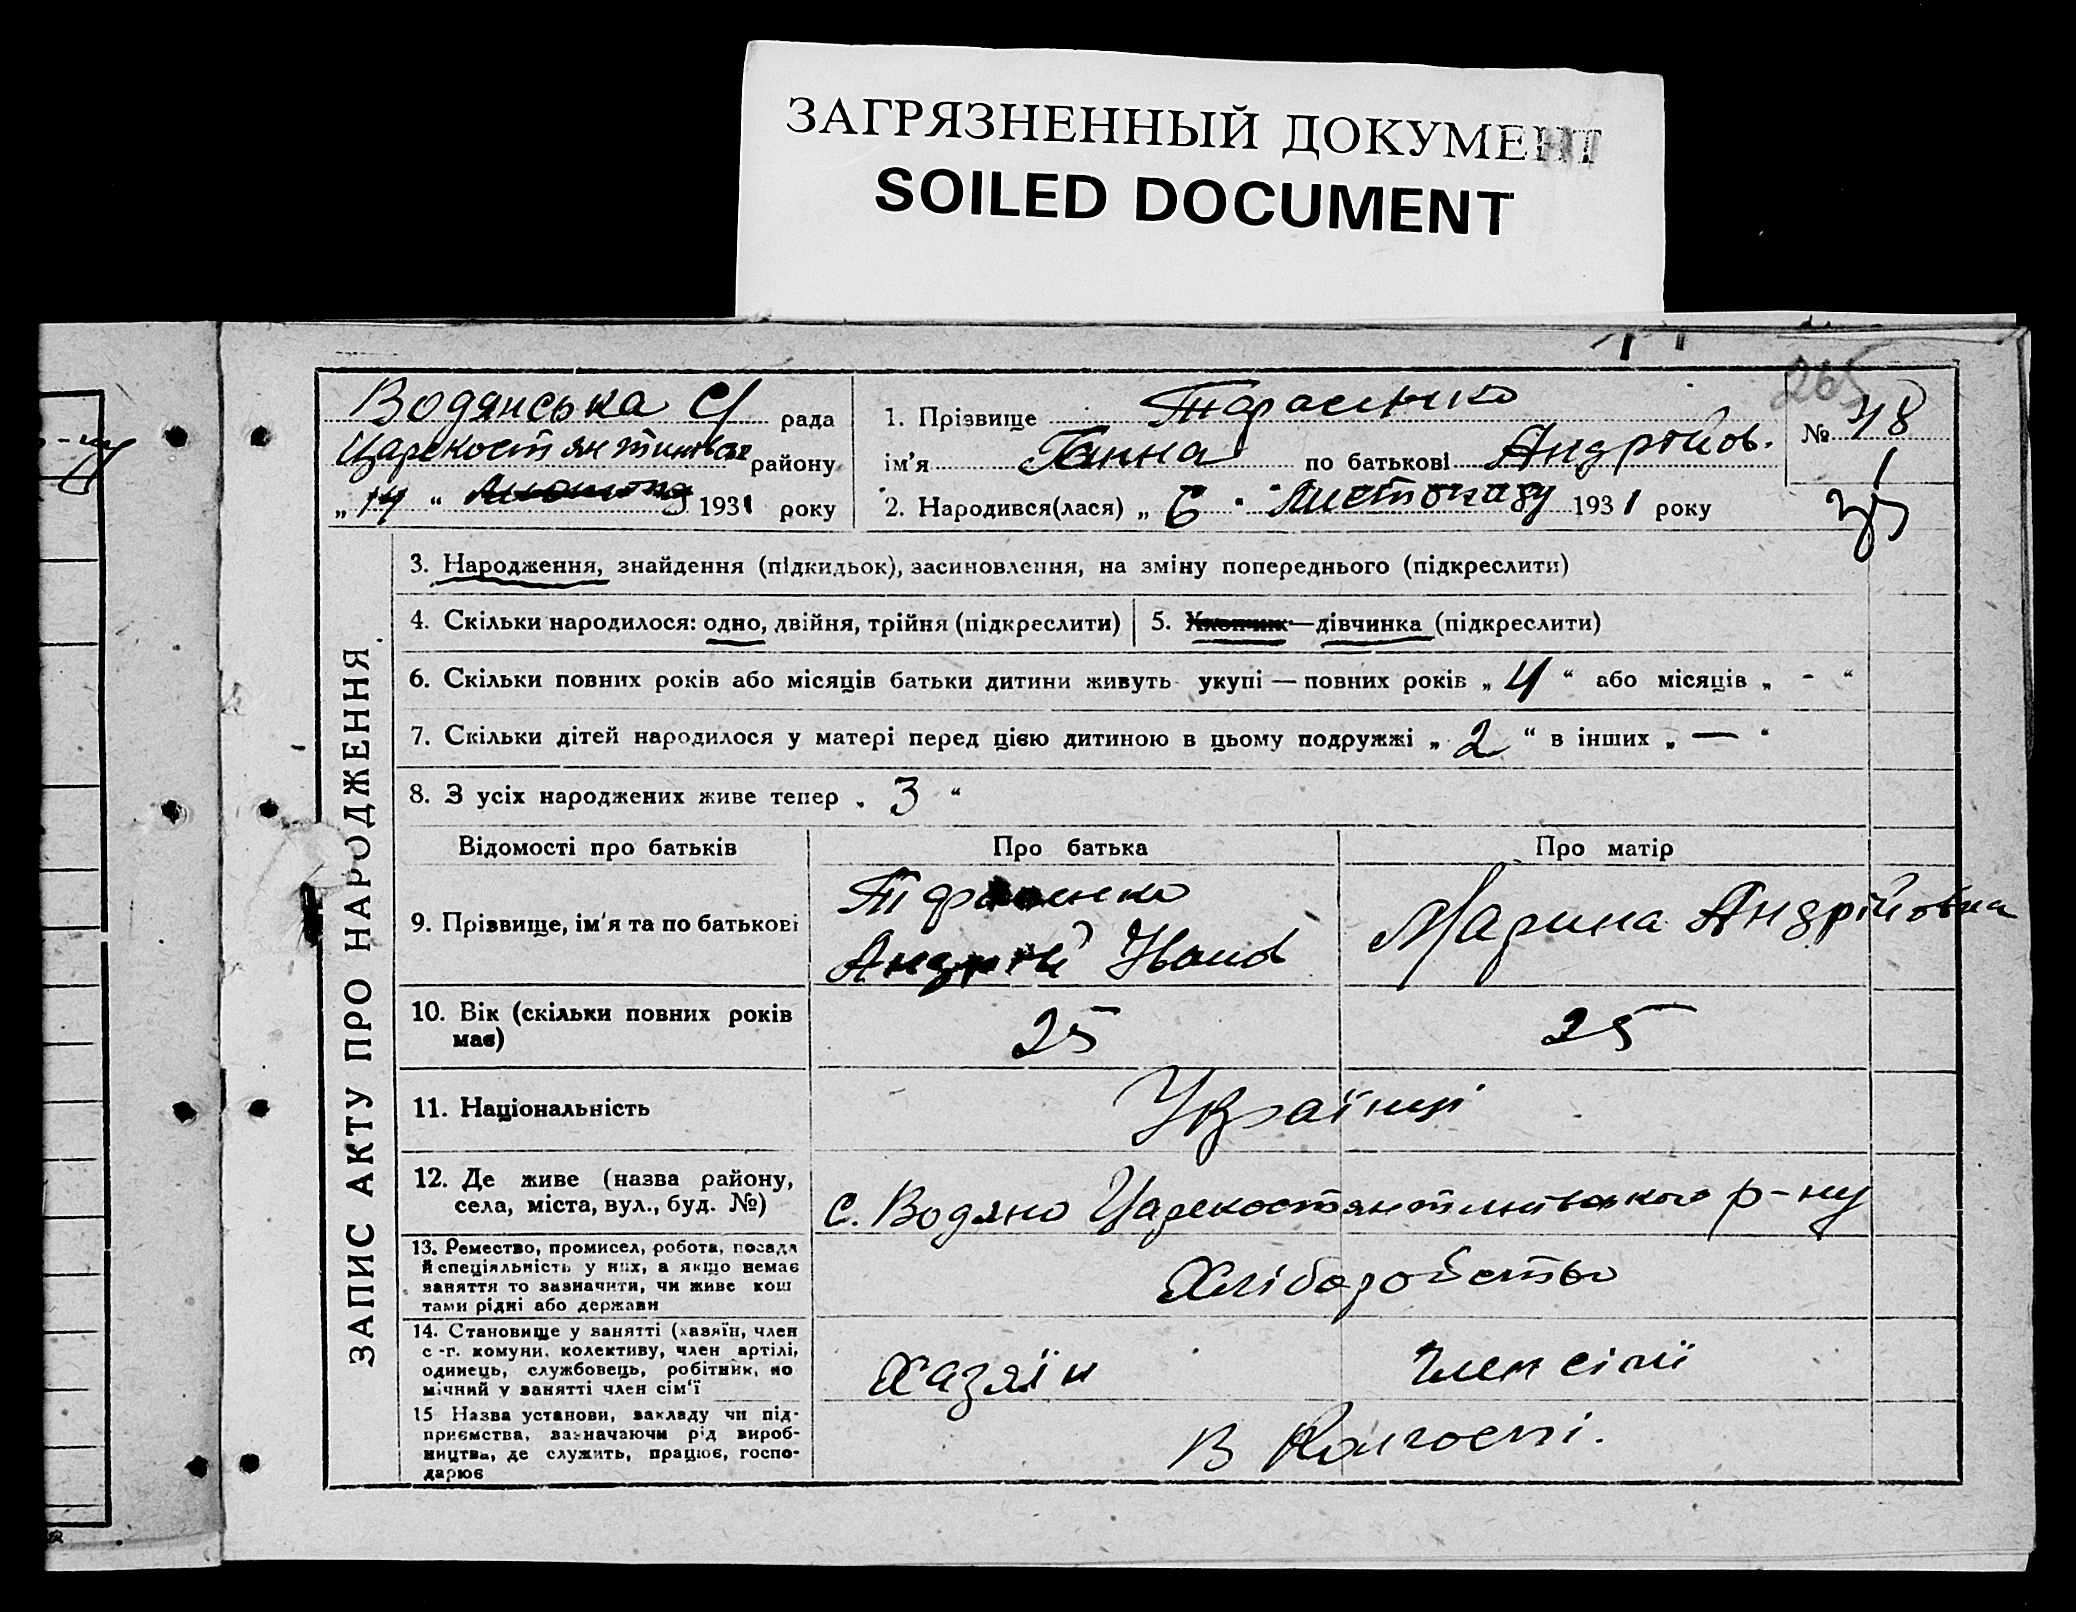 ЗАГРЯЗНЕННЫЙ ДОКУМЕНТ
SOILED DOCUMENT
265
Водянська С/ рада
Царекостянтинівськ району
„ 14 “ 1931 року
1. Прізвище Тарасенко
ім'я Ганна по батькові Андрійов.
2. Народився(лася) „ 6 “ Листопаду 1931 року
№ 48
ЗАПИС АКТУ ПРО НАРОДЖЕННЯ
3. Народження, знайдення (підкидьок), засиновлення, на зміну попереднього (підкреслити)
4. Скільки народилося: одно, двійня, трійня (підкреслити)
5. Хлопчик—дівчинка (підкреслити)
6. Скільки повних років або місяців батьки дитини живуть укупі — повних років „ 4 “ або місяців „ - “
7. Скільки дітей народилося у матері перед цією дитиною в цьому подружжі „ 2 “ в інших „ — “
8. З усіх народжених живе тепер „ 3 “
Відомості про батьків Про батька Про матір
9. Прізвище, ім'я та по батькові
Тарасенко
Андрій Іванов
Марина Андрійовна
10. Вік (скільки повних років
має)
25
25
11. Національність
Українці
12. Де живе (назва району,
села, міста, вул., буд. №)
с. Водяно Царекостянтинівського р-ну
13. Ремество, промисел, робота, посада
й спеціяльність у них, а якщо немає
заняття то зазначити, чи живе кош
тами рідні або держави
Хліборобство
14. Становище у занятті (хазяїн, член
с-г. комуни, колективу, член артілі,
одинець, службовець, робітник, по
мічний у занятті член сім'ї
Хазяїн
Член сімї
15 Назва установи, закладу чи під-
приємства, зазначаючи рід вироб-
ництва, де служить, працює, госпо-
дарює
В Колгоспі.